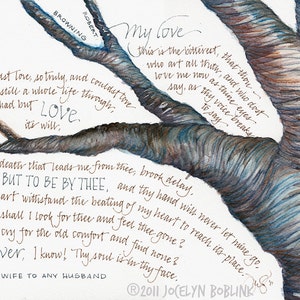 BROWNING
ROBERT
My Love
this is the bitterest, that thou
who art all truth, and who dost
love me now as thine eyes
say, as thy voice breaks
to say
st love, so truly, and couldst love
still a whole life through,
had but LOVE
its will,
death that leads me from thee brook delay.
BUT TO BE BY THEE, and thy hand will never let mine go
art withstand the beating of my heart to reach its place.
shall I look for thee and feel thee gone?
cry for the old comfort and find none?
ver, I know! Thy soul is in thy face.
WIFE TO ANY HUSBAND
©2011 JOCELYN BOBLINK